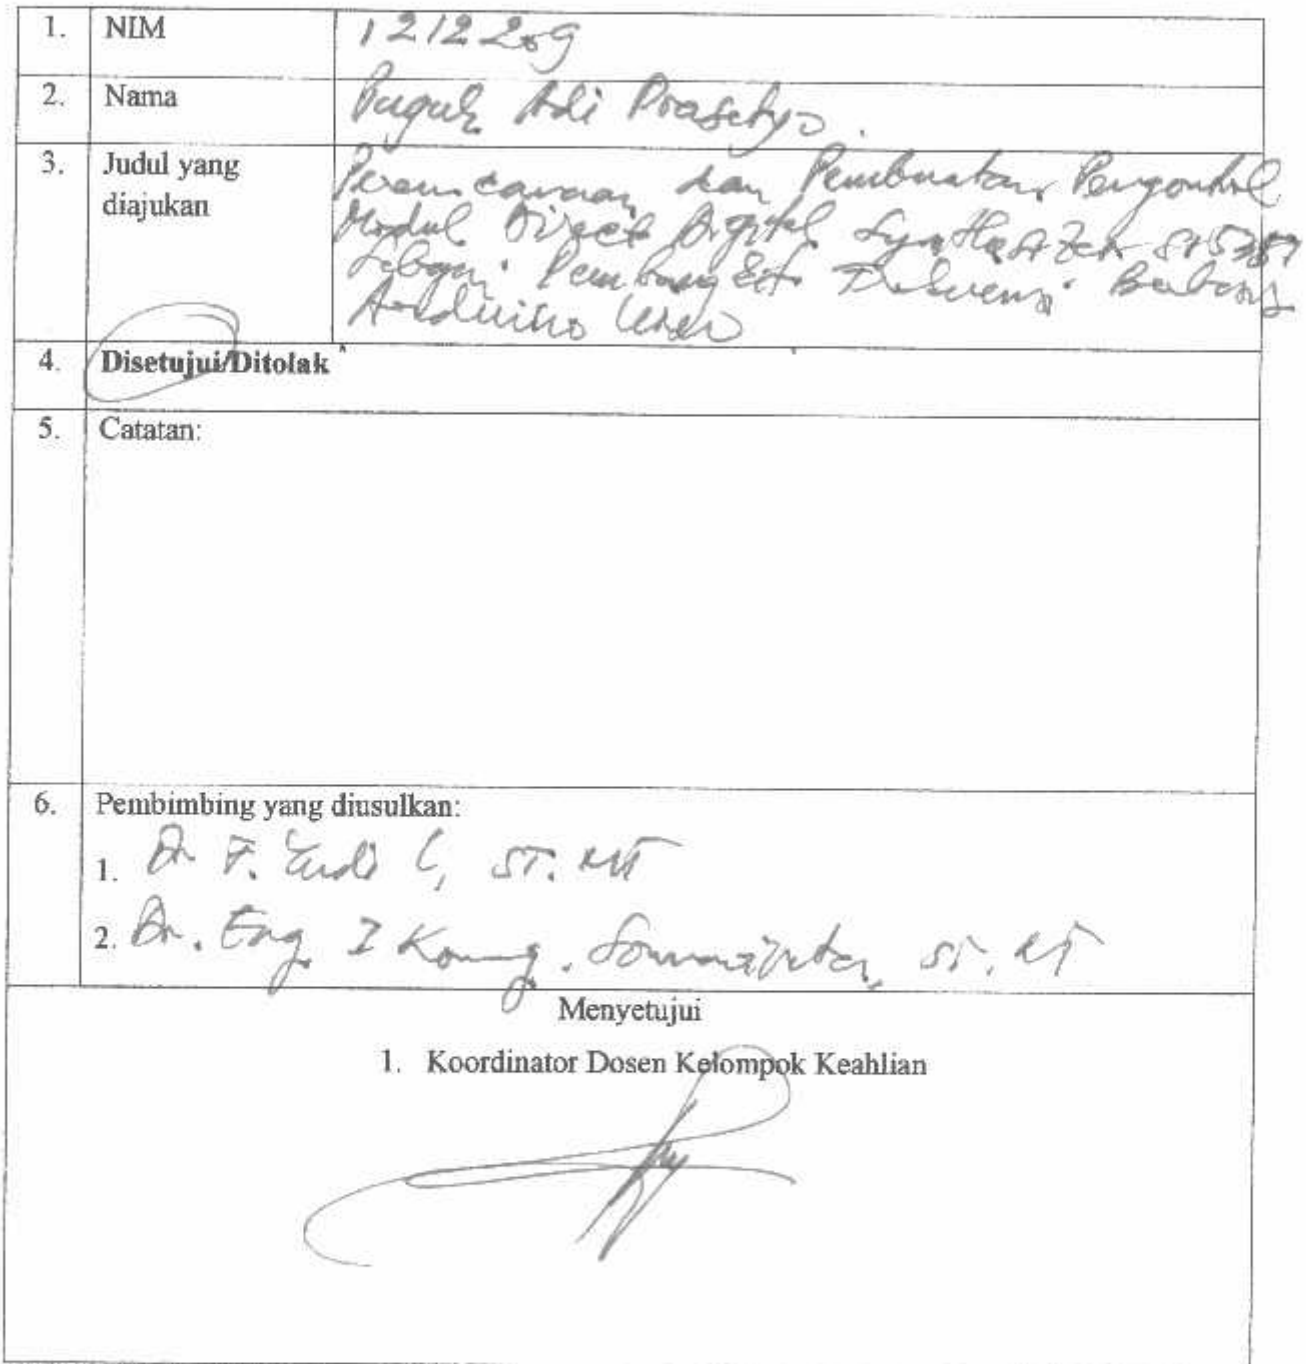 1. NIM 1212209
2. Nama Puguh Adi Prasetyo.
3. Judul yang diajukan
Perencanaan dan Pembuatan Pengontrol
Modul Direct Digital Synthesizer SI5351
Sebagai Pembangkit Frekuensi Berbasis
Arduino Uno
4. Disetujui/Ditolak
5. Catatan:
6. Pembimbing yang diusulkan:
1. Dr. F. Yudi L, ST. MT
2. Dr. Eng. I Komang. Somawirata, ST, MT
Menyetujui
1. Koordinator Dosen Kelompok Keahlian